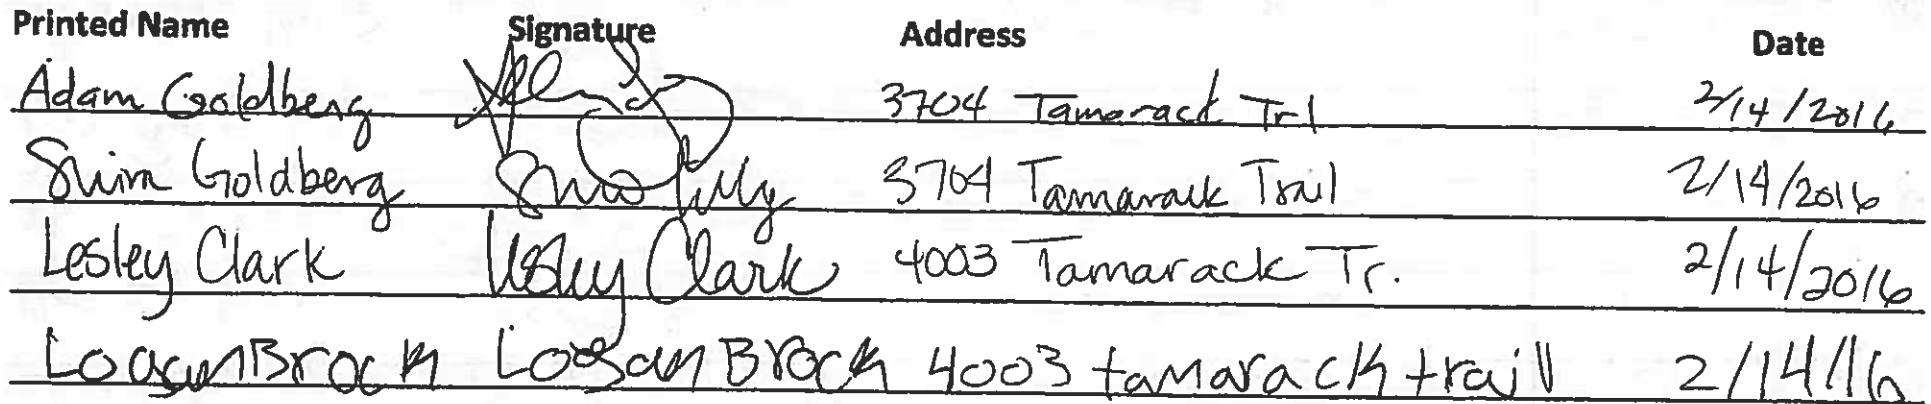 Printed Name Signature Address Date
Adam Goldberg 3704 Tamarack Trl 2/14/2016
Shira Goldberg 3704 Tamarack Trail 2/14/2016
Lesley Clark Lesley Clark 4003 Tamarack Tr. 2/14/2016
Brock Brock 4003 tamarack trail 2/14/16